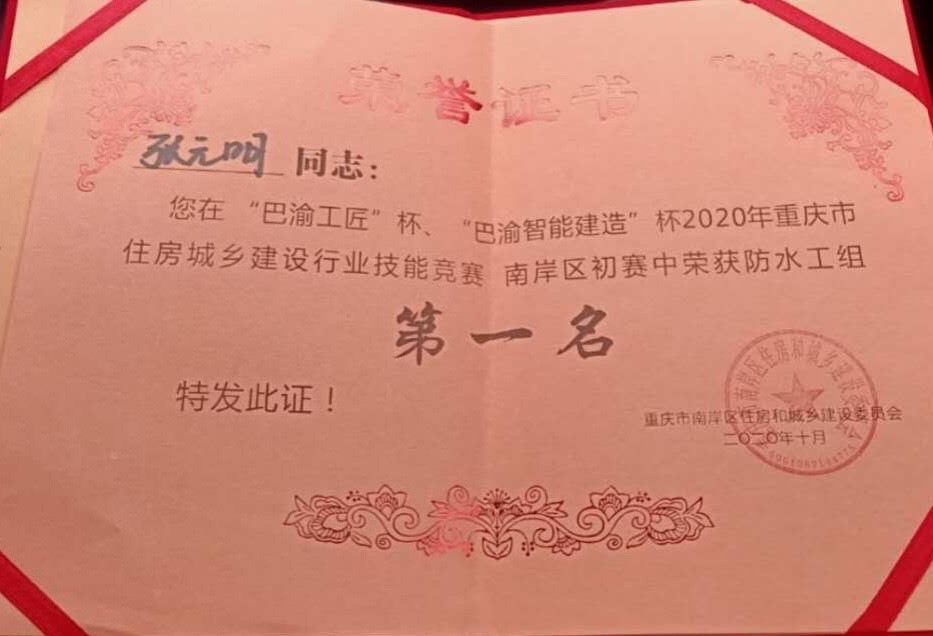 荣誉证书
张元明 同志：
您在“巴渝工匠”杯、“巴渝智能建造”杯2020年重庆市
住房城乡建设行业技能竞赛 南岸区初赛中荣获防水工组
第一名
特发此证！
重庆市南岸区住房和城乡建设委员会
二〇二〇年十月